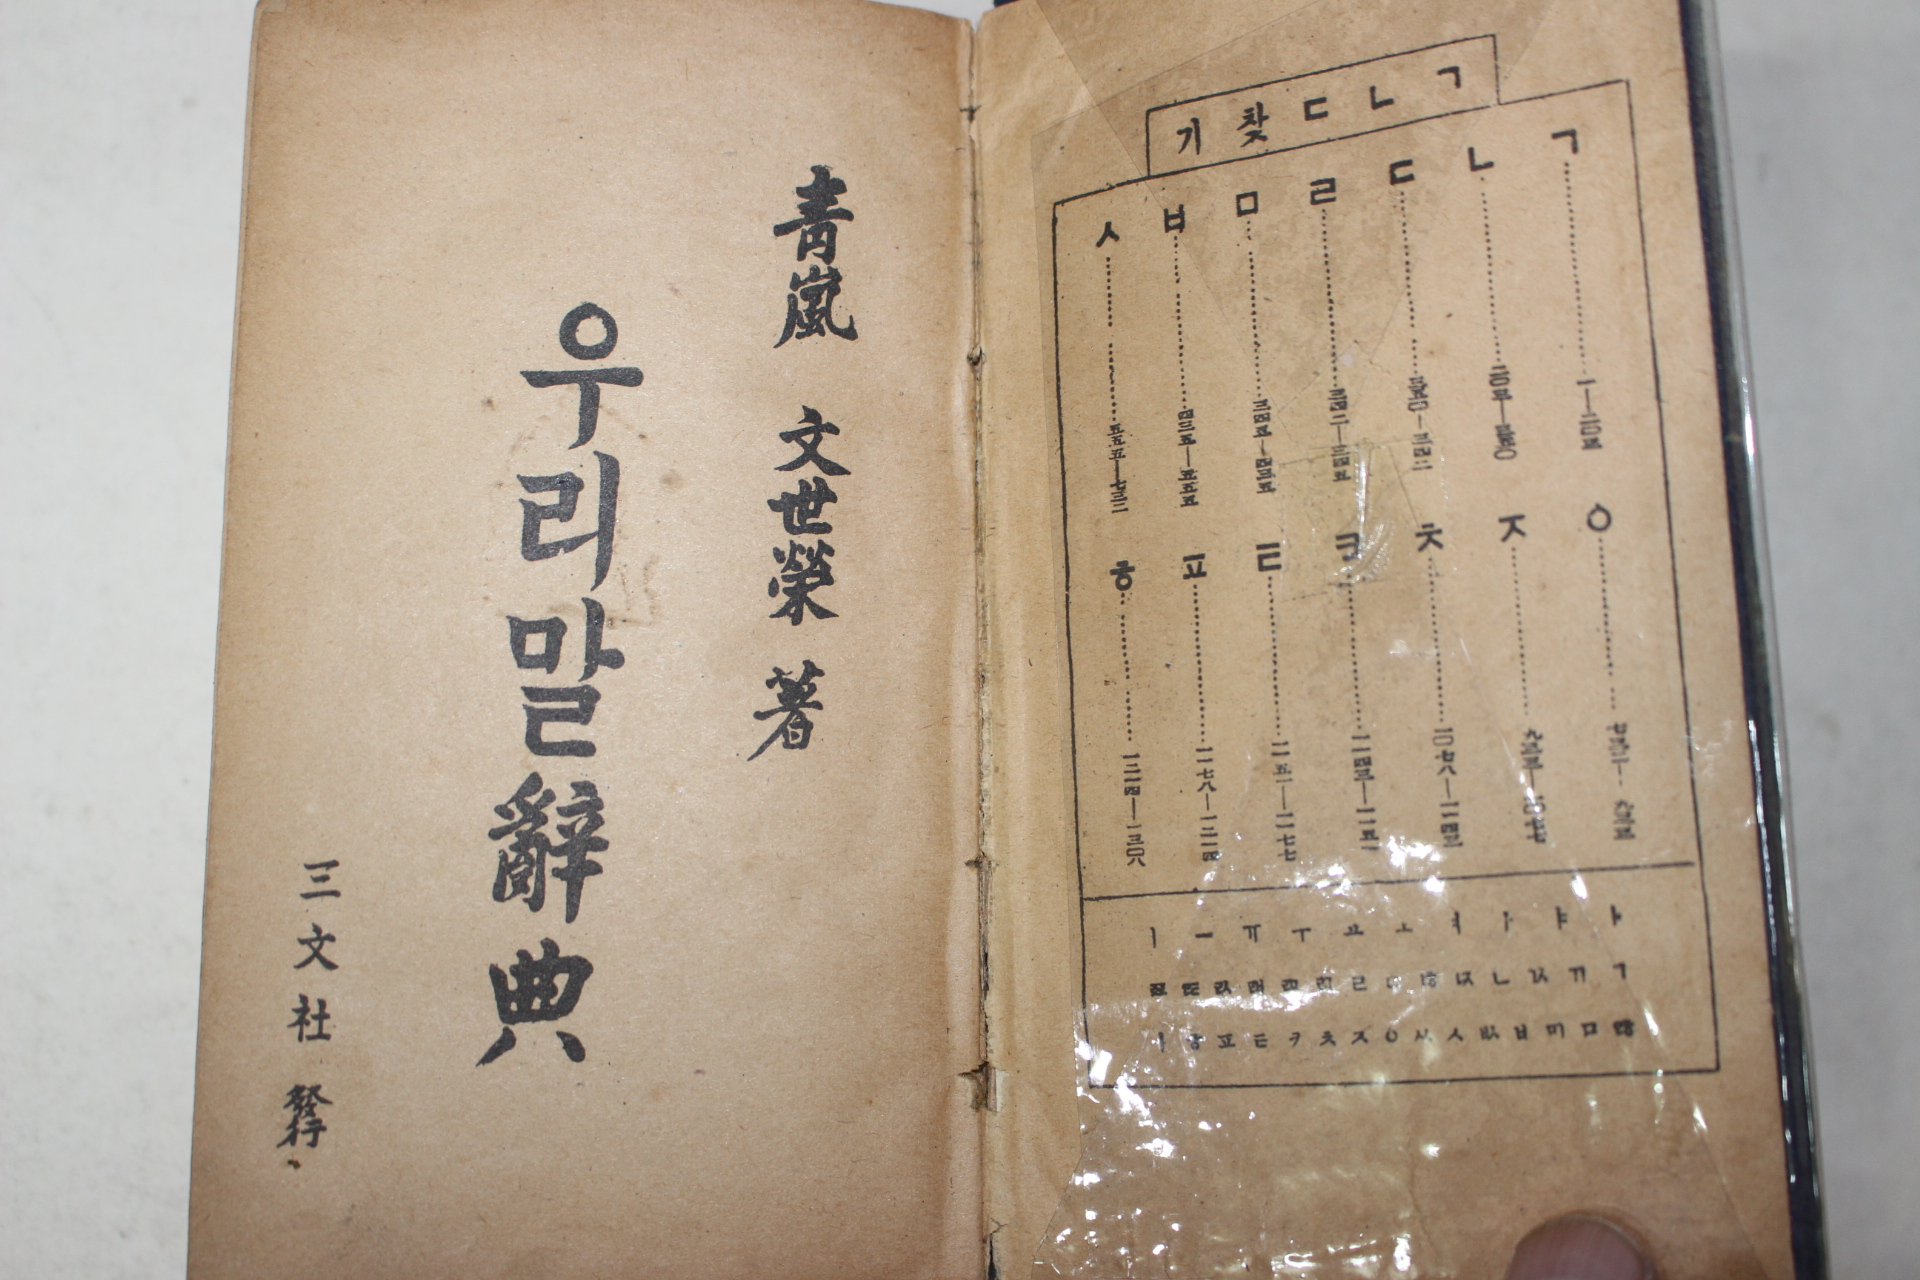 ㄱㄴㄷ찾기
ㄱ……一—二〇五
ㄴ……
ㄷ……三四二
ㄹ……三四二—三四五
ㅁ……三四五—四三五
ㅂ……四三五—五五五
ㅅ……五五五—七三二
ㅇ……
ㅈ……
ㅊ……一〇七八—一一四三
ㅋ……一一四三—一一五一
ㅌ……一一五一—一一七七
ㅍ……一一七八—一二一四
ㅎ……一二一四—一三〇八
ㅏ ㅑ ㅓ ㅕ ㅗ ㅛ ㅜ ㅠ ㅡ ㅣ
ㄱ ㄲ ㄳ ㄴ ㄵ ㄶ ㄷ ㄹ
ㅁ ㅂ ㅄ ㅅ ㅆ ㅇ ㅈ ㅊ ㅋ ㅌ ㅍ ㅎ
靑嵐 文世榮 著
우리말辭典
三文社 發行